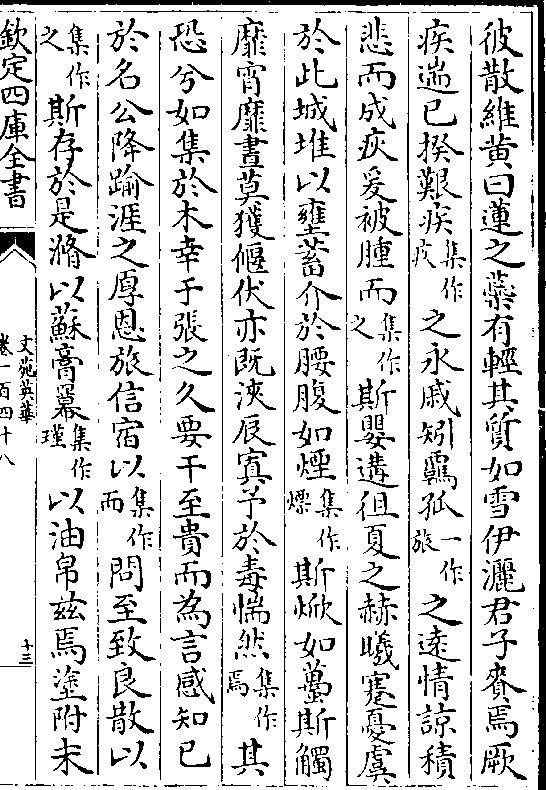 彼散維黄曰蓮之藥有輕其質如雪伊灑君子賚焉厥
疾遄已揆艱疾集作疚之永戚矧羈孤一作旅之遠情諒積
悲而成疢爰被腫而集作之斯嬰遘徂夏之赫曦蹇憂虞
於此城堆以壅蓄介於腰腹如煙集作熛斯焮如蠆斯觸
靡宵靡晝莫獲偃伏亦既浹辰寘予於毒惴然集作焉其
恐兮如集於木幸于張之久要干至貴而為言感知已
於名公降踰涯之厚恩旅信宿以集作而問至致良散以
集作之斯存於是滫以蘇膏冪集作瑾以油帛兹焉塗附未
欽定四庫全書
文苑英華
卷一百四十八
十三